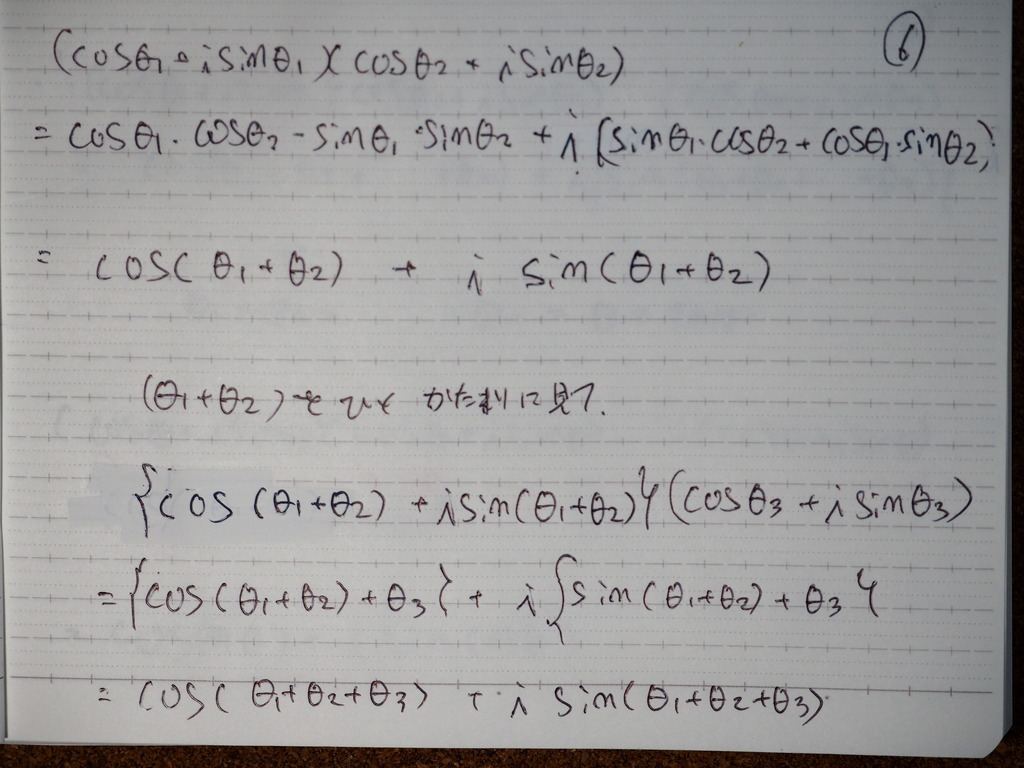 ⑥
(cosθ₁ + i sinθ₁)(cosθ₂ + i sinθ₂)
= cosθ₁・cosθ₂ - sinθ₁・sinθ₂ + i (sinθ₁・cosθ₂ + cosθ₁・sinθ₂)
= cos(θ₁+θ₂) + i sin(θ₁+θ₂)
(θ₁+θ₂)をひとかたまりに見て.
{cos(θ₁+θ₂) + i sin(θ₁+θ₂)}(cosθ₃ + i sinθ₃)
= {cos(θ₁+θ₂) + θ₃} + i {sin(θ₁+θ₂) + θ₃}
= cos(θ₁+θ₂+θ₃) + i sin(θ₁+θ₂+θ₃)